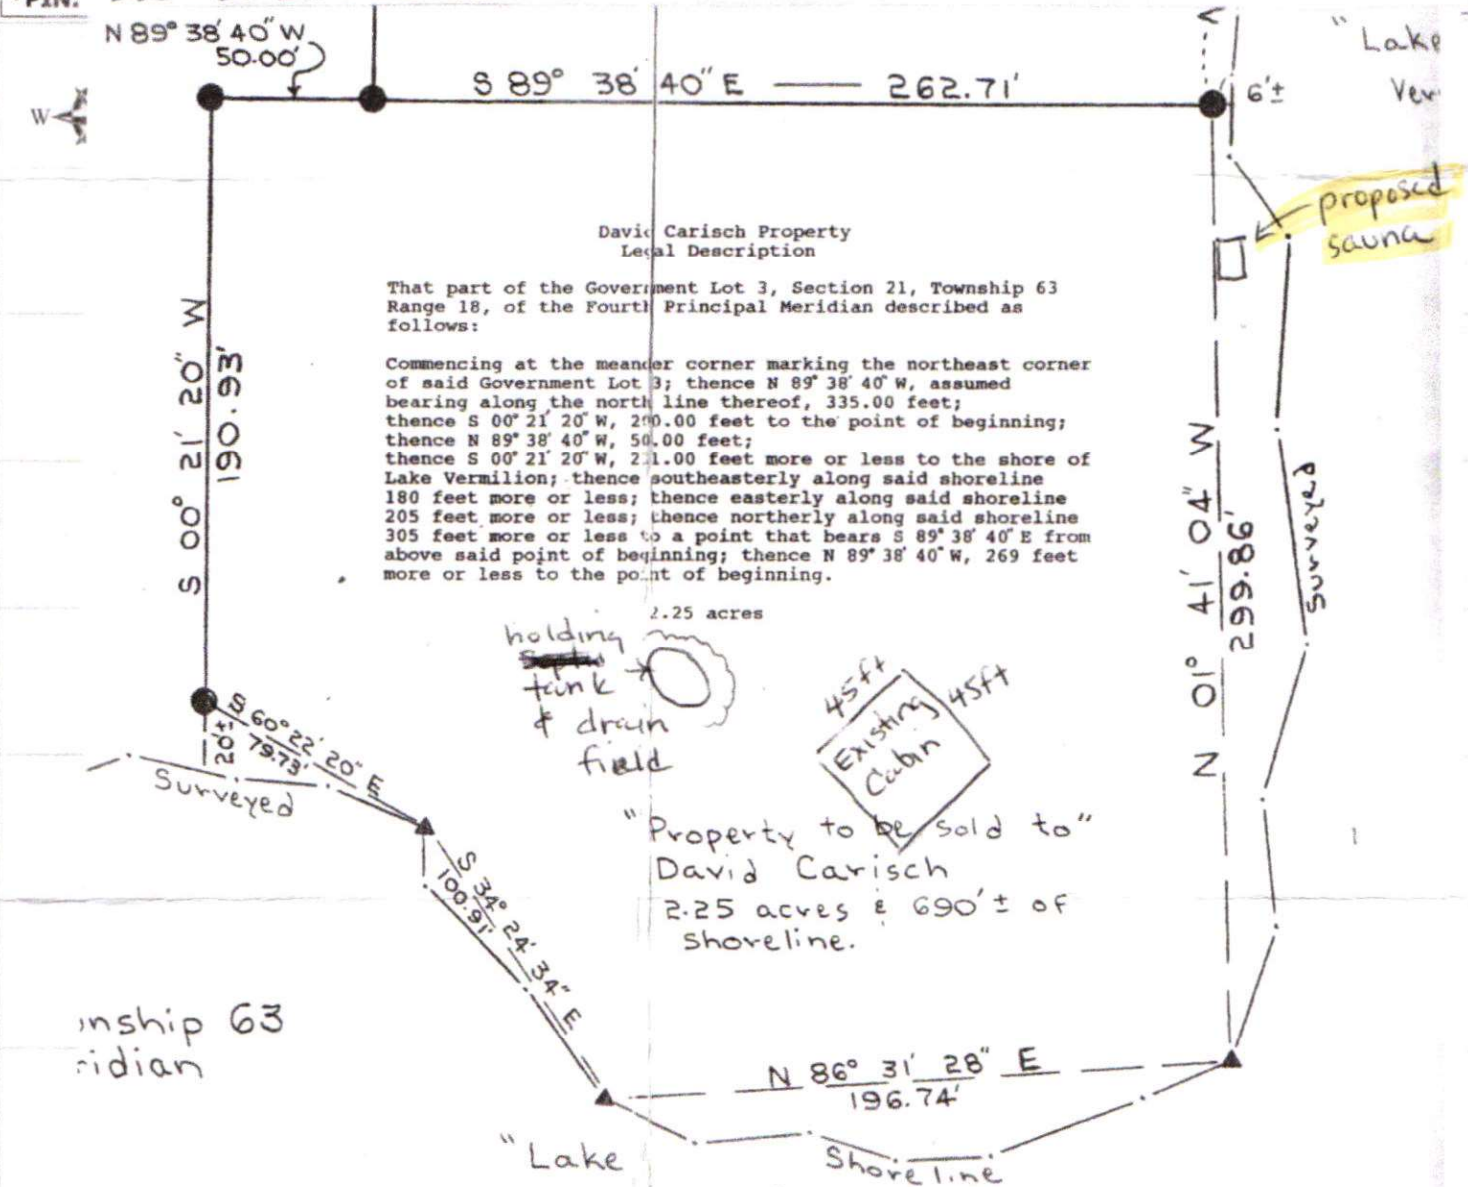 PIN:
N 89° 38' 40" W
50.00'
S 89° 38' 40" E —— 262.71'
6'±
"Lake
Ver
W
proposed
sauna
David Carisch Property
Legal Description
That part of the Government Lot 3, Section 21, Township 63
Range 18, of the Fourth Principal Meridian described as
follows:
Commencing at the meander corner marking the northeast corner
of said Government Lot 3; thence N 89° 38' 40" W, assumed
bearing along the north line thereof, 335.00 feet;
thence S 00° 21' 20" W, 200.00 feet to the point of beginning;
thence N 89° 38' 40" W, 50.00 feet;
thence S 00° 21' 20" W, 211.00 feet more or less to the shore of
Lake Vermilion; thence southeasterly along said shoreline
180 feet more or less; thence easterly along said shoreline
205 feet more or less; thence northerly along said shoreline
305 feet more or less to a point that bears S 89° 38' 40" E from
above said point of beginning; thence N 89° 38' 40" W, 269 feet
more or less to the point of beginning.
2.25 acres
S 00° 21' 20" W
190.93'
N 01° 41' 04" W
299.86'
surveyed
holding
tank
& drain
field
45ft
45ft
Existing
Cabin
S 60° 22' 20" E
79.73'
20'±
Surveyed
"Property to be sold to"
David Carisch
2.25 acres & 690'± of
shoreline.
S 34° 24' 34" E
100.91'
nship 63
ridian
N 86° 31' 28" E
196.74'
"Lake
Shoreline